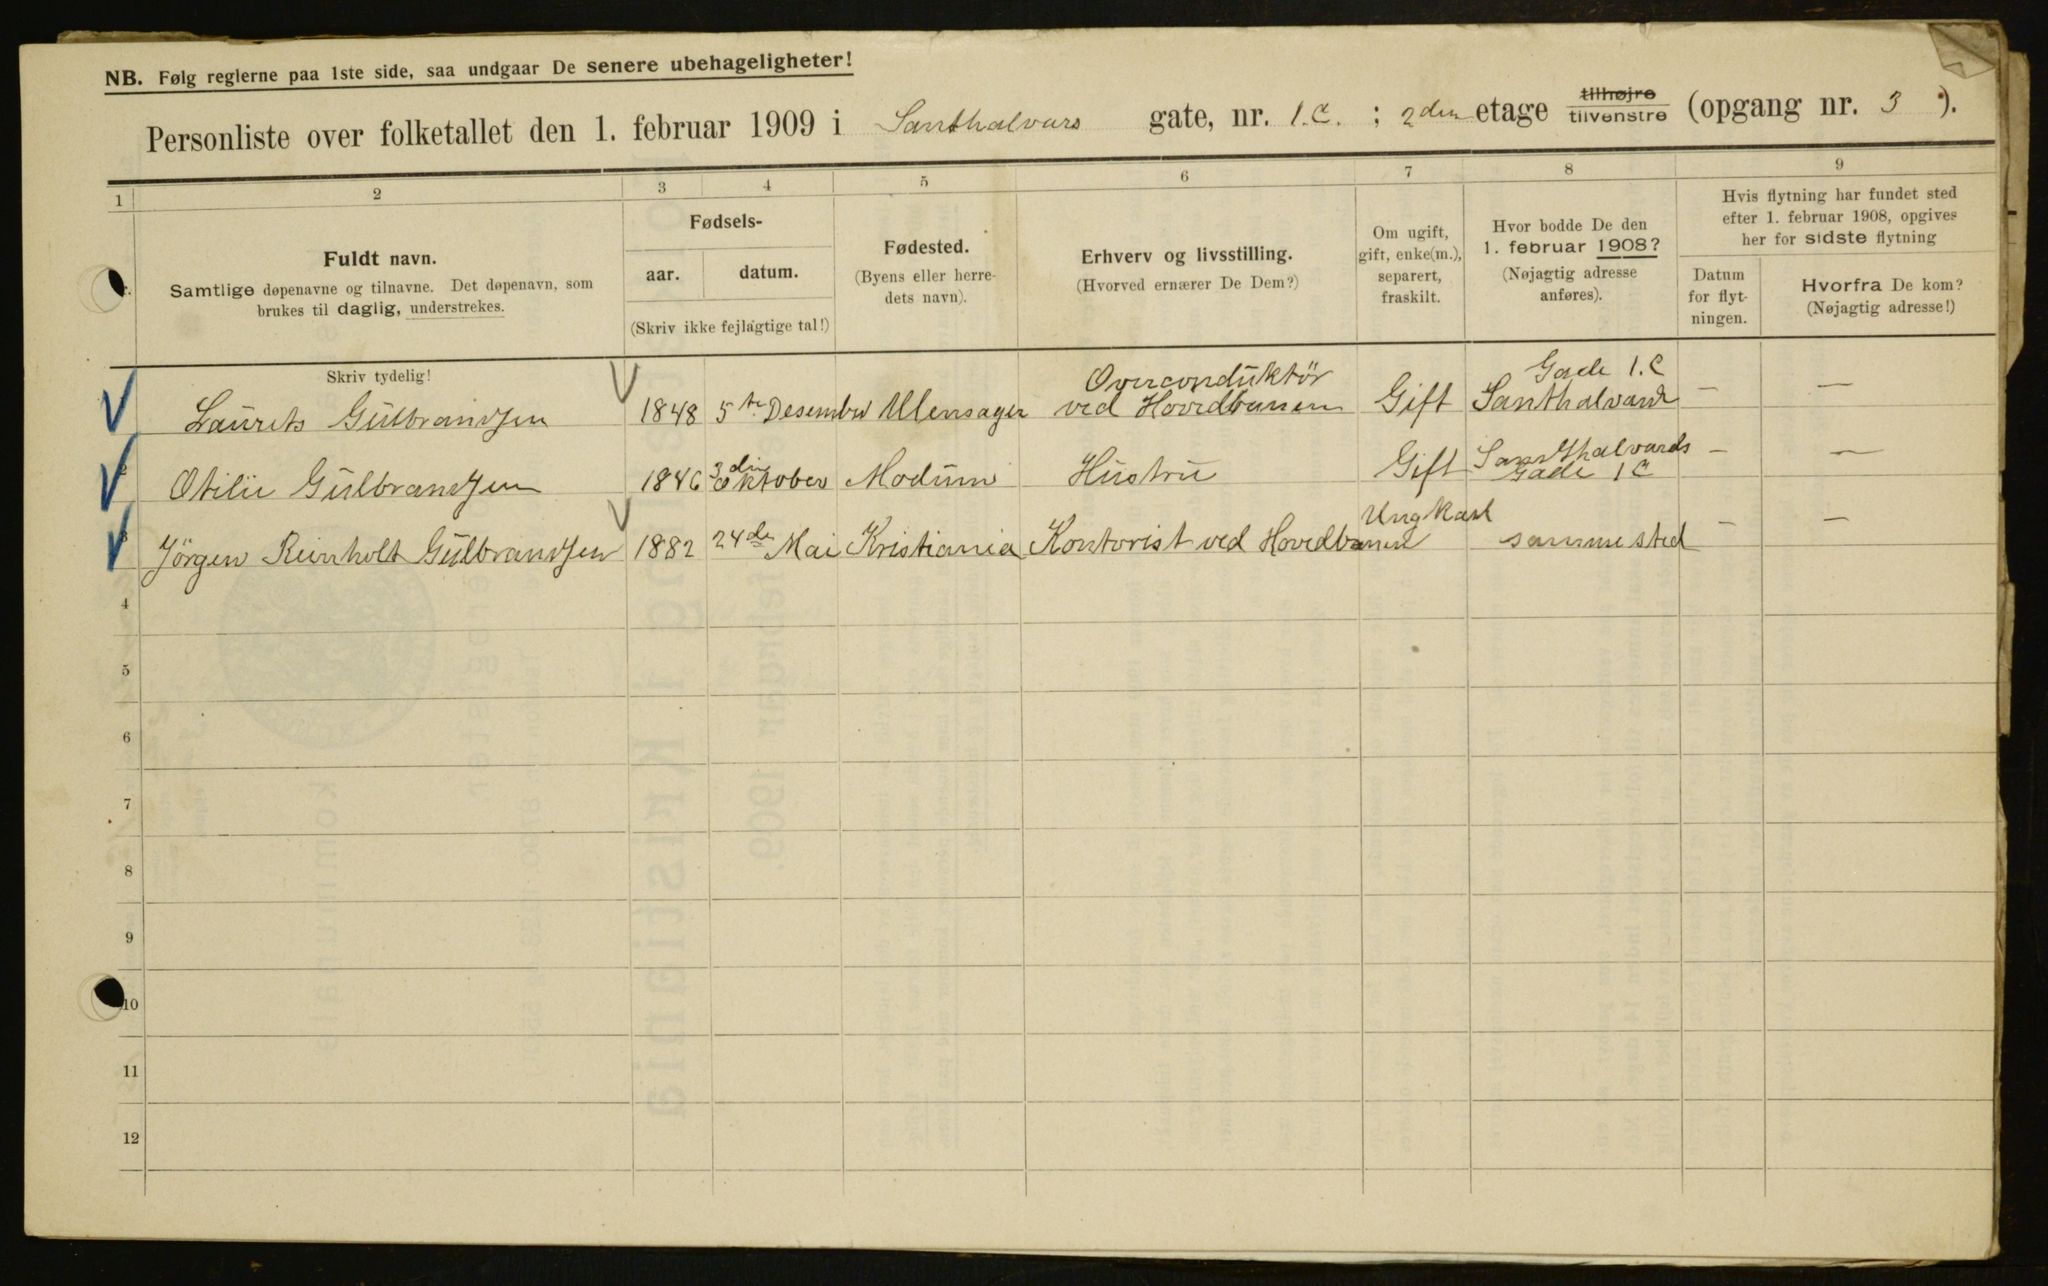 NB. Følg reglerne paa 1ste side, saa undgaar De senere ubehageligheter!
Personliste over folketallet den 1. februar 1909 i Santhalvars gate, nr. 1.C. ; 2den etage tilhøjre tilvenstre (opgang nr. 3 ).
1 2 3 4 5 6 7 8 9
Fuldt navn.
Samtlige døpenavne og tilnavne. Det døpenavn, som
brukes til daglig, understrekes.
Fødsels-
aar. datum.
(Skriv ikke fejlagtige tal!)
Fødested.
(Byens eller herre-
dets navn).
Erhverv og livsstilling.
(Hvorved ernærer De Dem?)
Om ugift,
gift, enke(m.),
separert,
fraskilt.
Hvor bodde De den
1. februar 1908?
(Nøjagtig adresse
anføres).
Hvis flytning har fundet sted
efter 1. februar 1908, opgives
her for sidste flytning
Datum
for flyt-
ningen.
Hvorfra De kom?
(Nøjagtig adresse!)
Skriv tydelig!
Overconduktör Gade 1.C
Laurits Gulbrandsen 1848 5te Desember Ullensager ved Hovedbanen Gift Santhalvards — —
2 Otilie Gulbrandsen 1846 3die Oktober Modum Hustru Gift Santhalvards Gade 1C — —
3 Jörgen Reinholt Gulbrandsen 1882 24de Mai Kristiania Kontorist ved Hovedbanen Ungkarl sammested — —
4
5
6
7
8
9
10
11
12